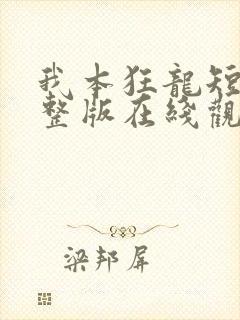 我本狂龍短
整版在綫觀
梁邦屏